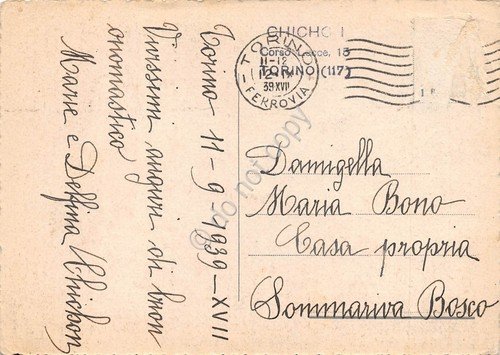 Torino 11-9-1939-XVII
Vivissimi auguri di buon
onomastico
Marie e Delfina Chichon
CHICHO I
Corso Lecce, 15
TORINO (117)
TORINO
11-12
12.IX
39XVII
FERROVIA
Damigella
Maria Bono
Casa propria
Sommariva Bosco
do not copy